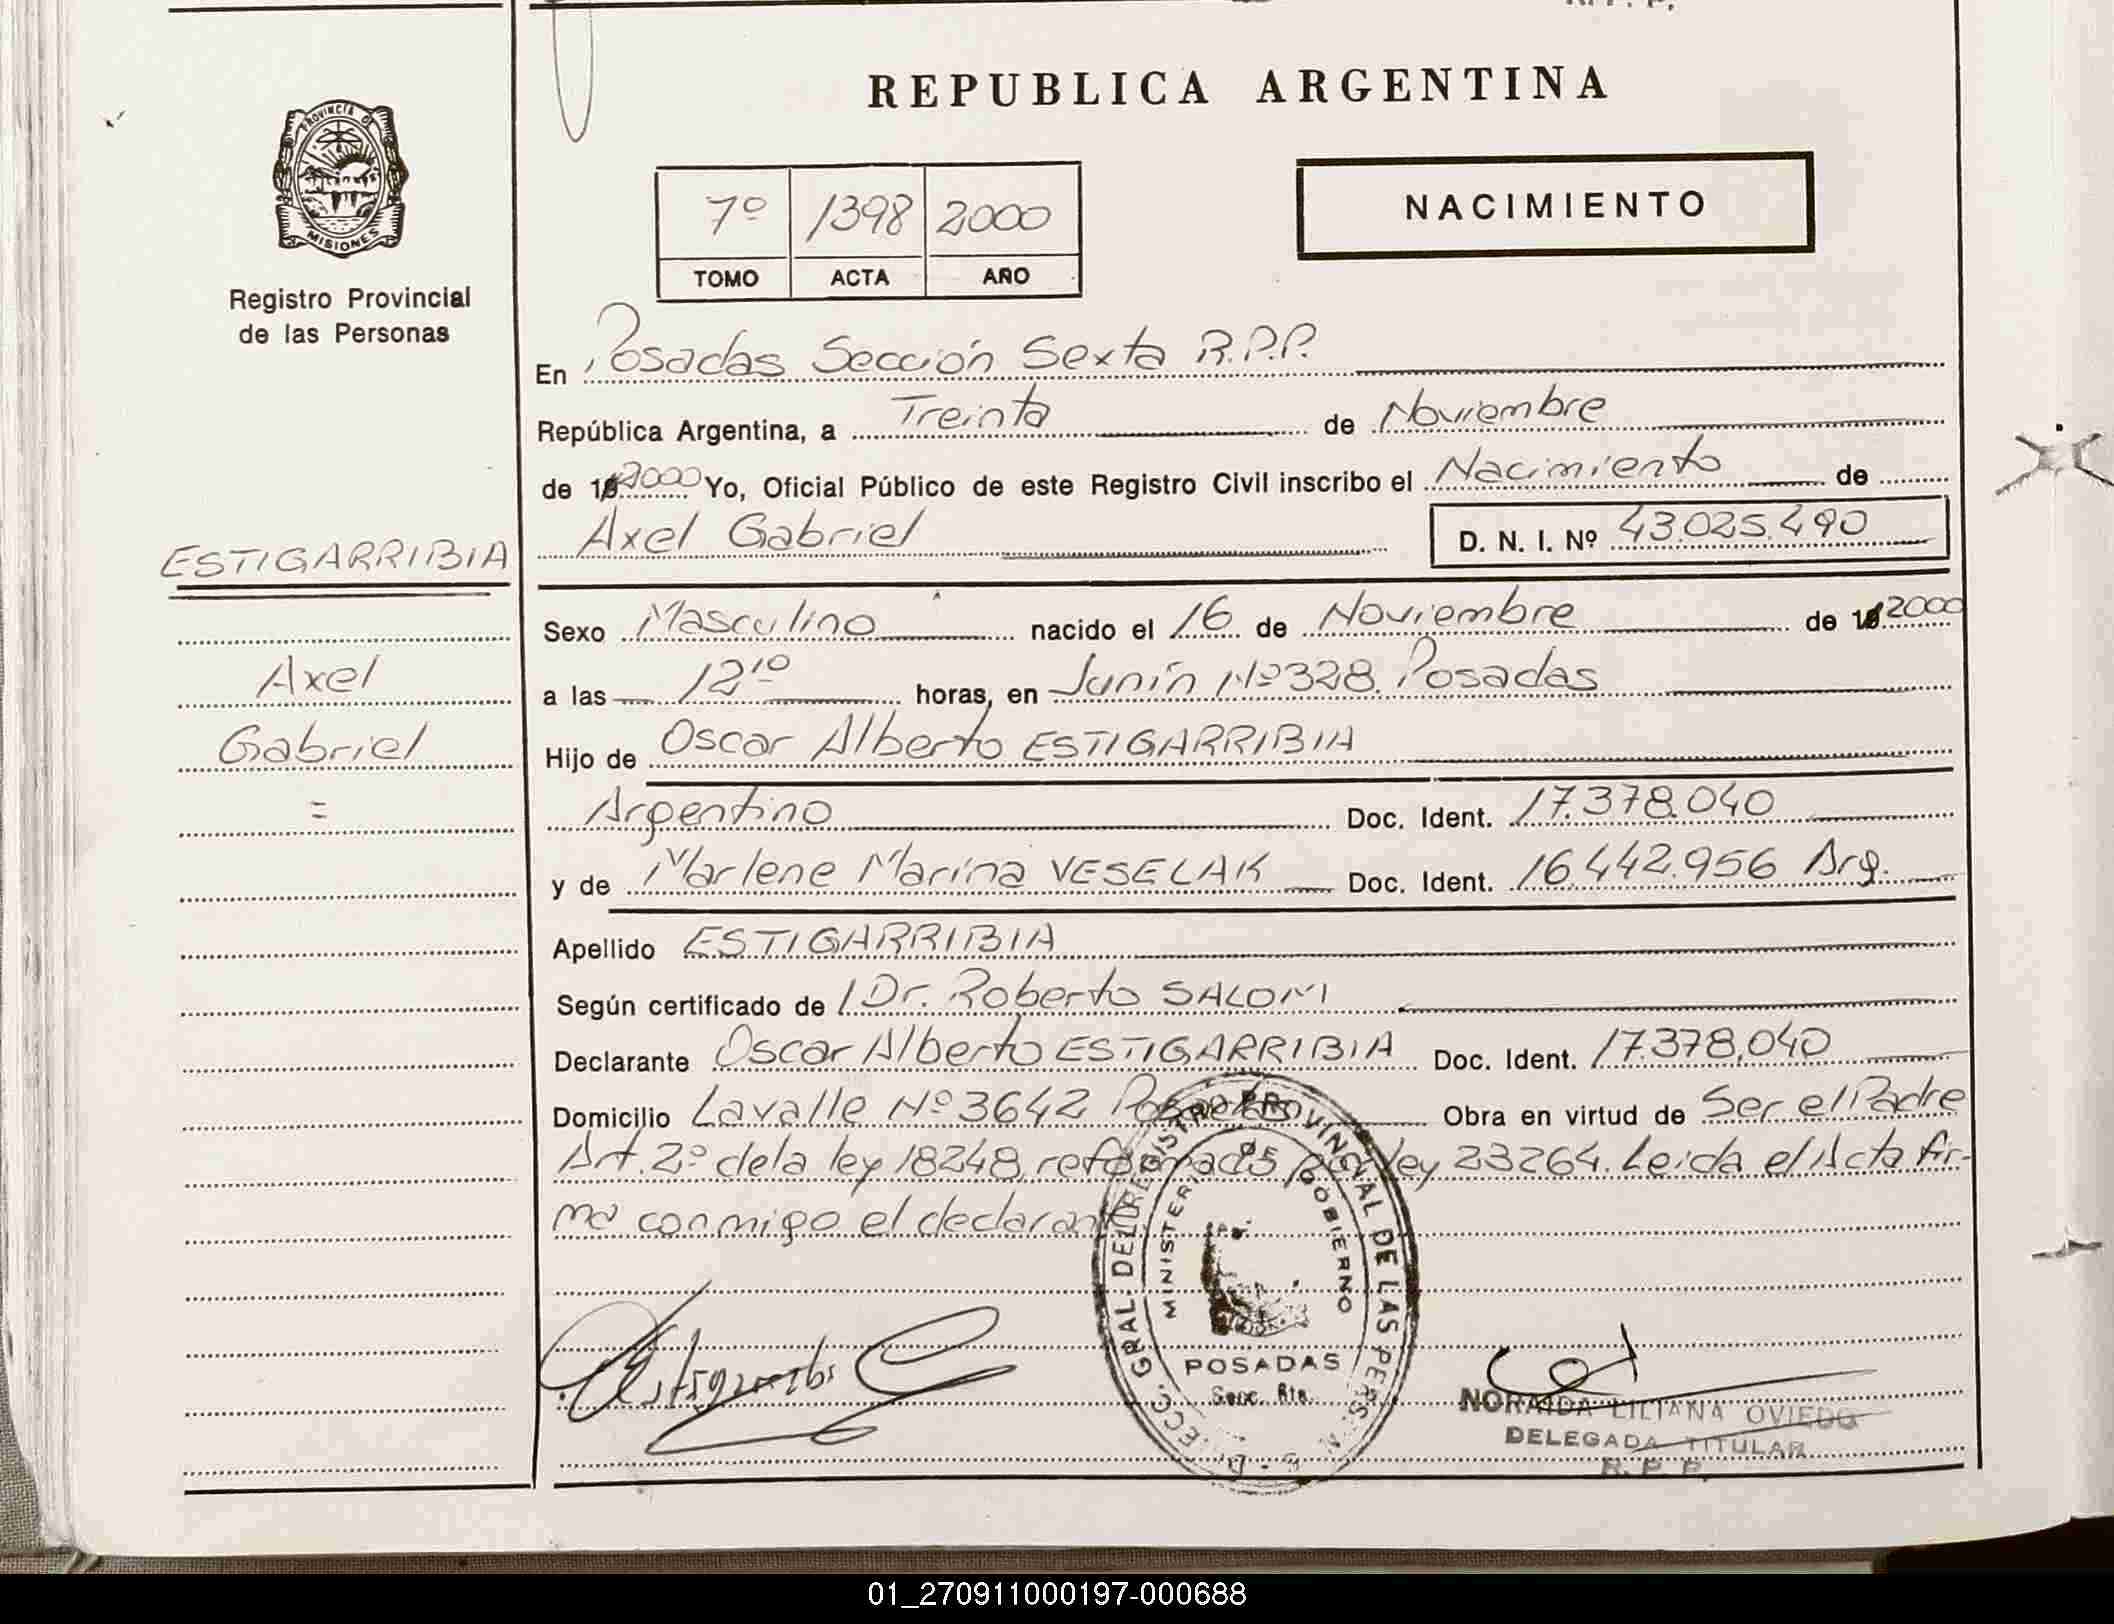 REPUBLICA ARGENTINA
PROVINCIA DE
MISIONES
Registro Provincial
de las Personas
7º 1398 2000
TOMO ACTA AÑO
NACIMIENTO
En Posadas Sección Sexta R.P.P.
República Argentina, a Treinta de Noviembre
de 19 2000 Yo, Oficial Público de este Registro Civil inscribo el Nacimiento de
Axel Gabriel D. N. I. Nº 43.025.490
ESTIGARRIBIA
Axel
Gabriel
=
Sexo Masculino nacido el 16 de Noviembre de 19 2000
a las 12¹⁰ horas, en Junín Nº 328. Posadas
Hijo de Oscar Alberto ESTIGARRIBIA
Argentino Doc. Ident. 17.378.040
y de Marlene Marina VESELAK Doc. Ident. 16.442.956 Arg.
Apellido ESTIGARRIBIA
Según certificado de Dr. Roberto SALOM
Declarante Oscar Alberto ESTIGARRIBIA Doc. Ident. 17.378.040
Domicilio Lavalle Nº 3642 Posadas Obra en virtud de Ser el Padre
Art. 2º de la ley 18248, reformada por ley 23264. Leida el Acta fir-
ma conmigo el declarante
DIRECC. GRAL. DEL REGISTRO PROVINCIAL DE LAS PERS.
MINISTERIO DE GOBIERNO
POSADAS
Secc. 6ta.
NORAIDA LILIANA OVIEDO
DELEGADA TITULAR
R. P. P.
01_270911000197-000688